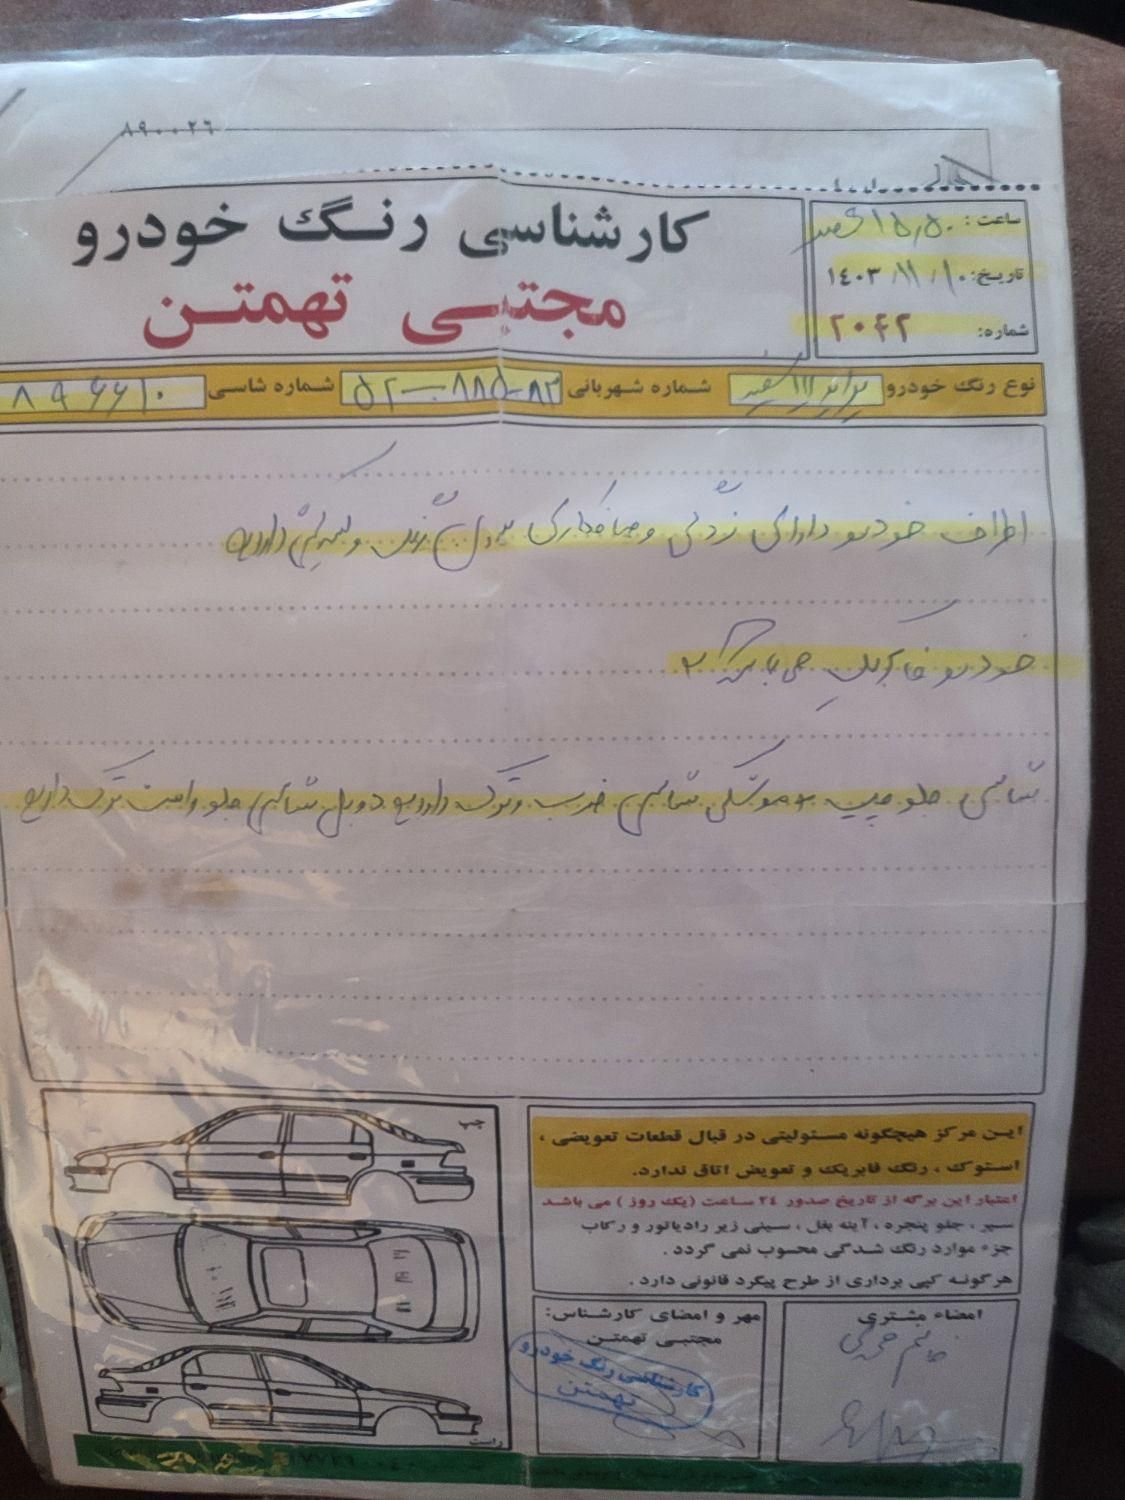 ۸۹۰۰۲۶
کارشناسی رنگ خودرو
مجتبی تهمتن
ساعت: ۱۵,۵۰ عصر
تاریخ: ۱۴۰۳/۱۱/۱۰
شماره: ۲۰۴۲
نوع رنگ خودرو پراید ۱۱۱ سفید شماره شهربانی ۸۲-۸۸۵-۵۲ شماره شاسی ۸۹۶۶۱۰
اطراف خودرو دارای زدگی و صافکاری بدون رنگ و لیسگیری دارد
خودرو فابریک می باشد
شاسی جلو چپ سرموشکی شاسی ضرب و ترک دارد دوبل شاسی جلو راست ترک دارد
چپ
راست
این مرکز هیچگونه مسئولیتی در قبال قطعات تعویضی،
استوک، رنگ فابریک و تعویض اتاق ندارد.
اعتبار این برگه از تاریخ صدور ۲۴ ساعت (یک روز) می باشد
سپر، جلو پنجره، آینه بغل، سینی زیر رادیاتور و رکاب
جزء موارد رنگ شدگی محسوب نمی گردد.
هرگونه کپی برداری از طرح پیگرد قانونی دارد.
امضاء مشتری
مهر و امضای کارشناس:
مجتبی تهمتن
کارشناسی رنگ خودرو
تهمتن